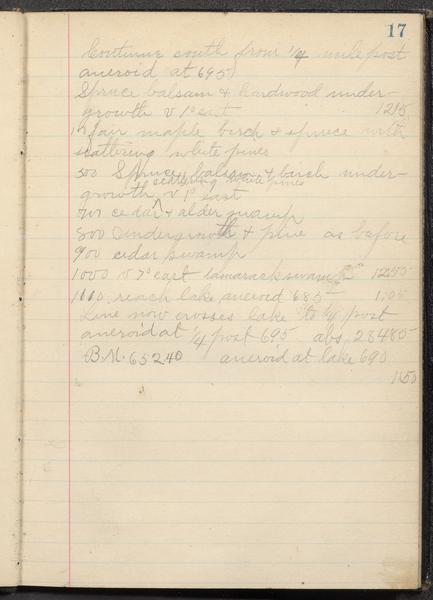 17
Continue south from 1/4 mile post
aneroid at 695
Spruce balsam & hardwood under-
growth V 1° east 1215
fair maple birch & spruce with
scattering white pines
500 Spruce balsam & birch under-
scattering white pines
growth V 1° east
700 cedar & alder swamp
800 undergrowth & pine as before
900 cedar swamp
1000 V 7° east tamarack swamp 1255
1110 reach lake aneroid 685
Line now crosses lake to 1/4 post
aneroid at 1/4 post 695 abs 28485
B.M. 65240 aneroid at lake 690
150